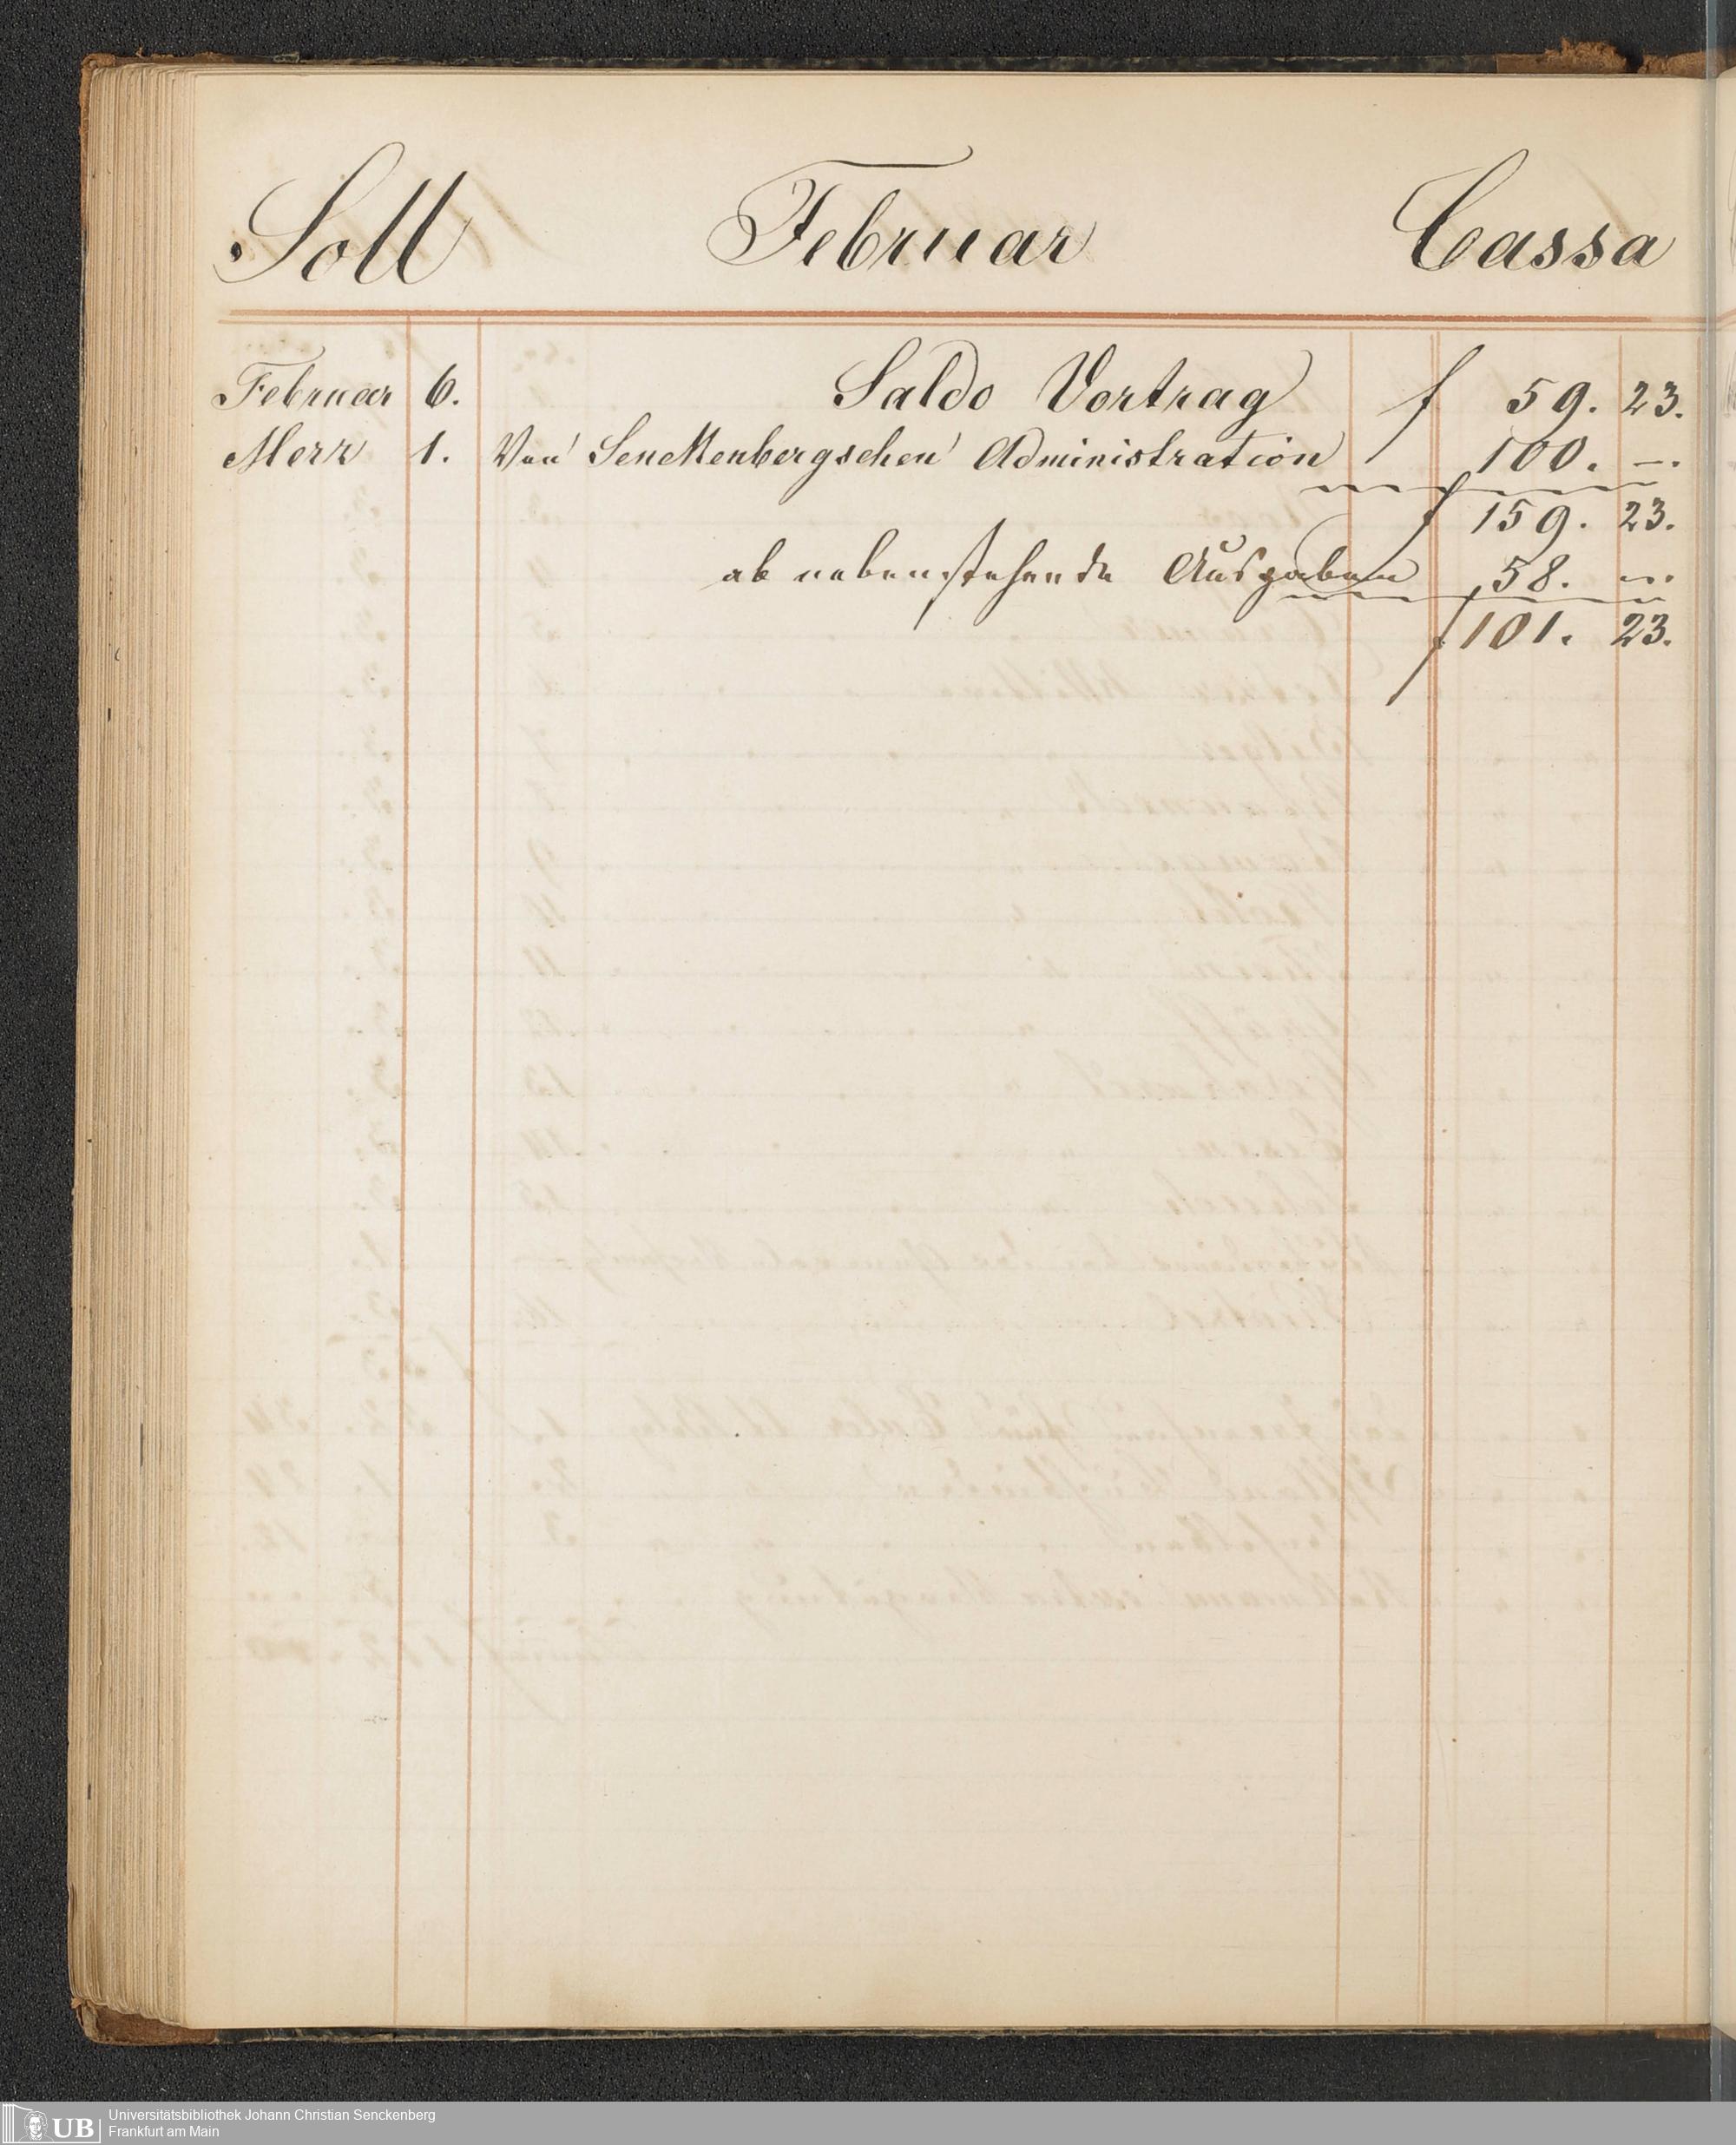 Soll Februar Cassa
Februar 6. Saldo Vortrag f 59. 23.
Merz 1. Von Senckenbergschen Administration " 100. —.
f 159. 23.
ab nebenstehende Ausgaben " 58. —.
f 101. 23.
UB Universitätsbibliothek Johann Christian Senckenberg
Frankfurt am Main